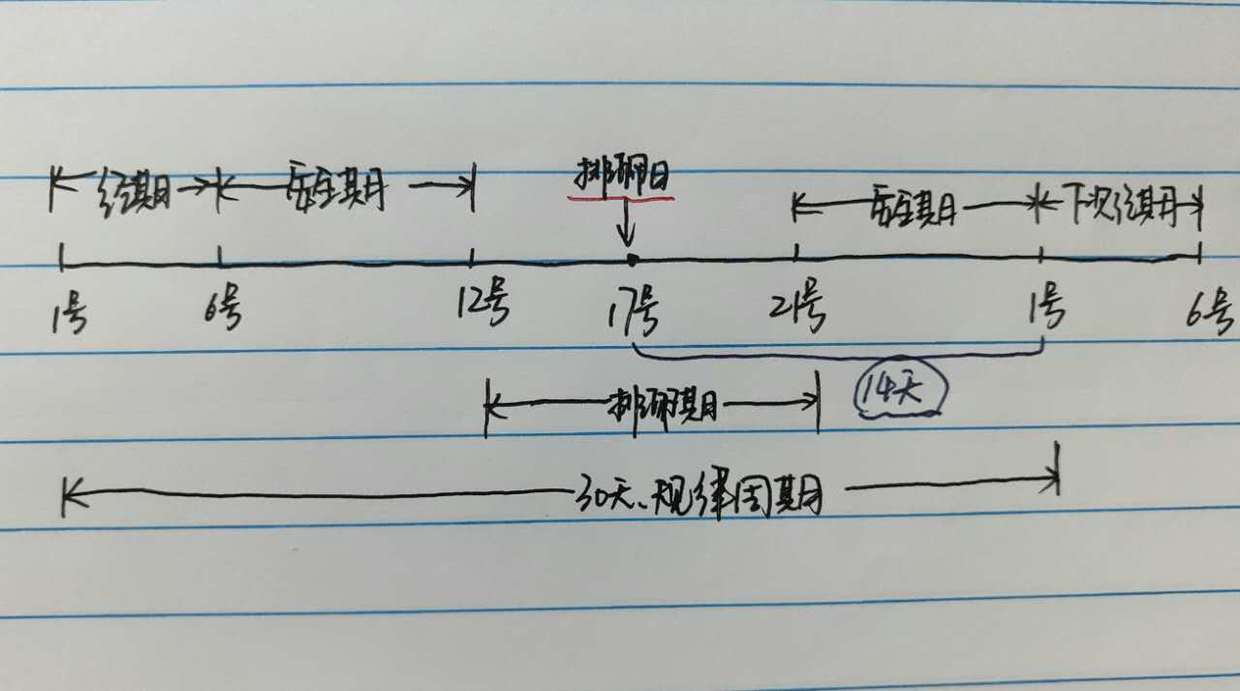 经期 安全期 排卵日 安全期 下次经期
1号 6号 12号 17号 21号 1号 6号
14天
排卵期
30天、规律周期